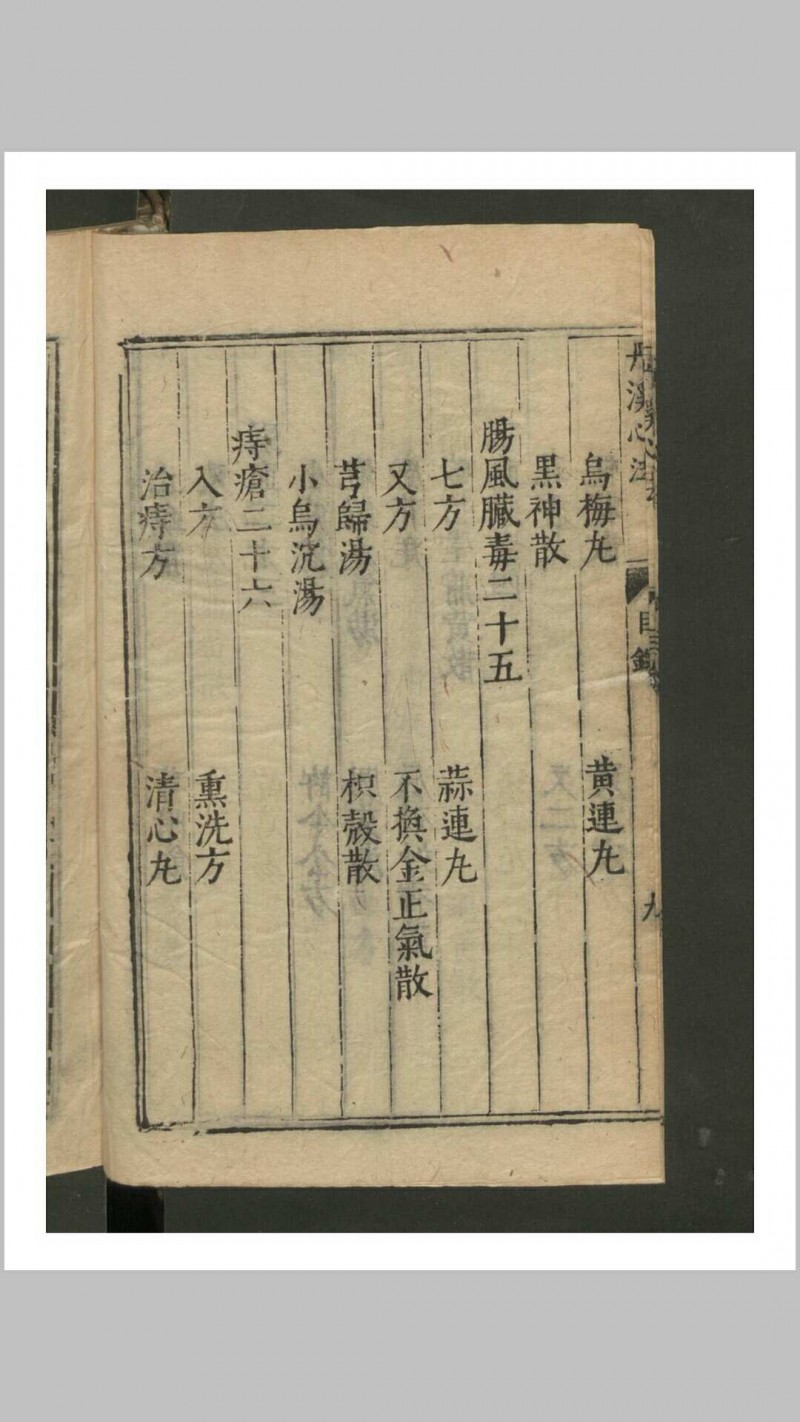 丹溪心法
目錄
九
烏梅丸
黃連丸
黑神散
腸風臟毒二十五
七方
蒜連丸
又方
不換金正氣散
芎歸湯
枳殼散
小烏沉湯
痔瘡二十六
入方
熏洗方
治痔方
清心丸